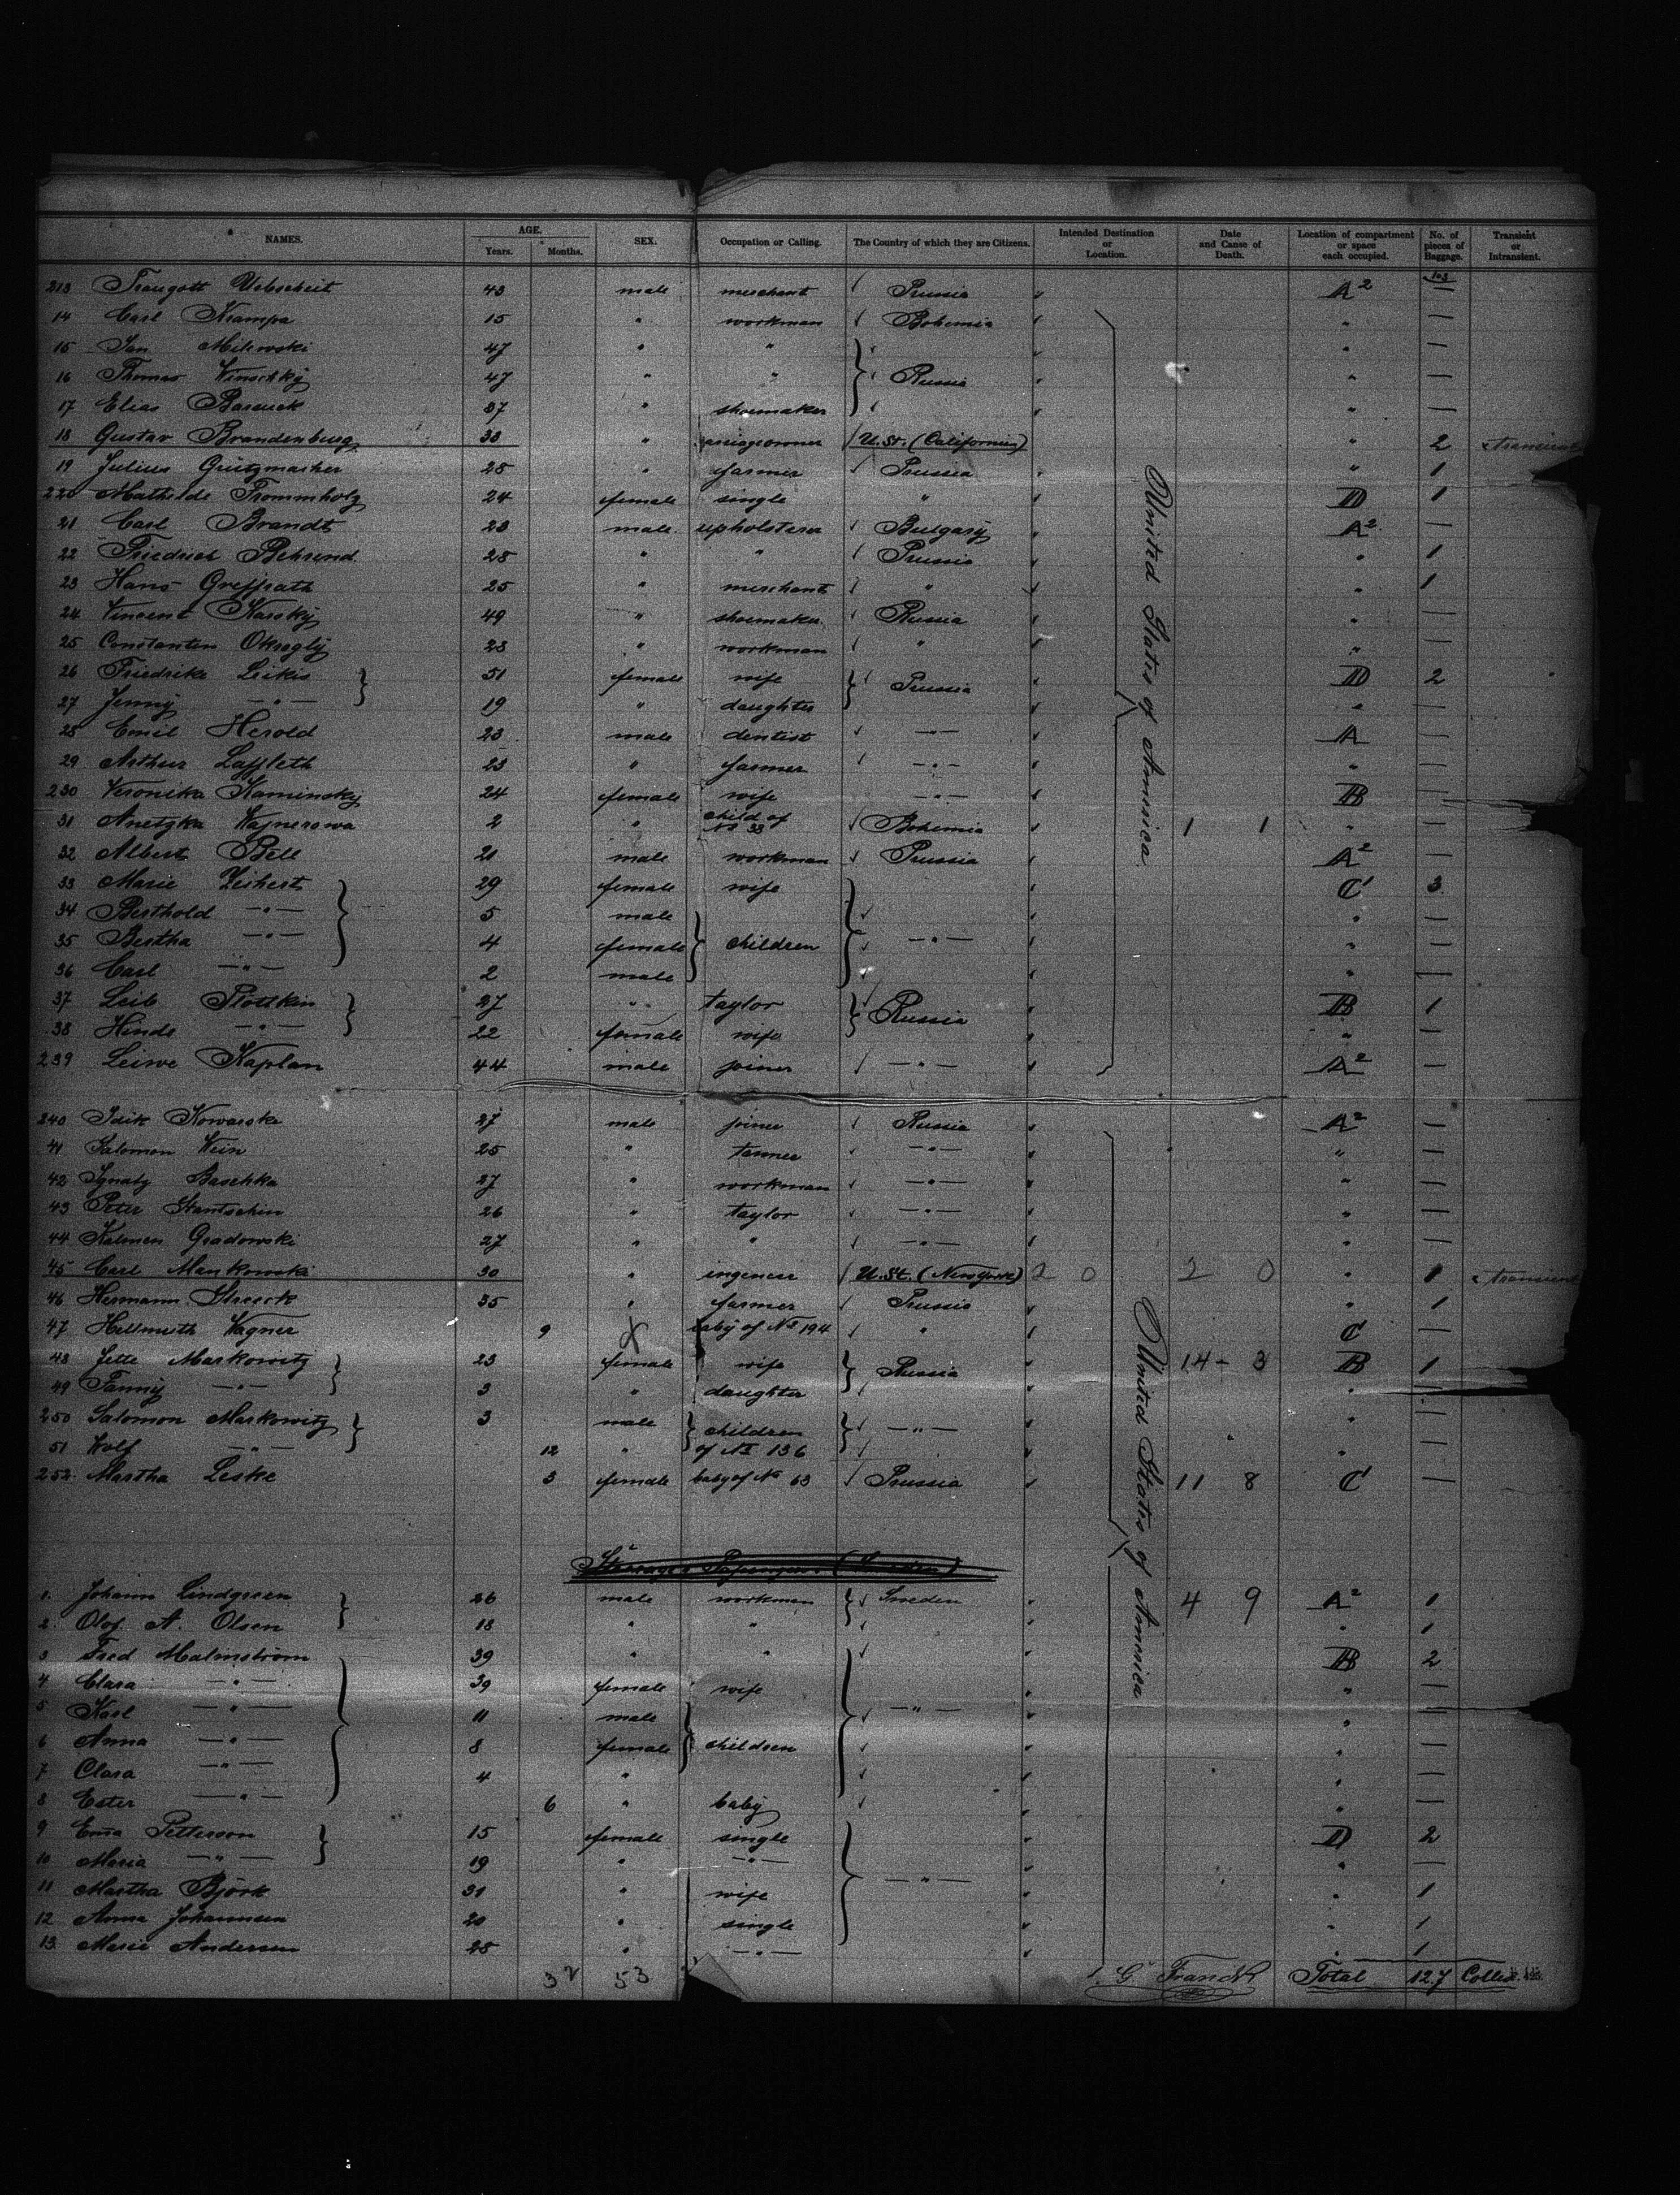 NAMES. AGE. Years. Months. SEX. Occupation or Calling. The Country of which they are Citizens. Intended Destination or Location. Date and Cause of Death. Location of compartment or space each occupied. No. of pieces of Baggage. Transient or Intransient.
103
213 Traugott 43 male merchant Prussia A2 —
14 Carl Krampa 15 " workman Bohemia " —
15 Jan Milewski 47 " " " —
16 Thomas 47 " " Russia " —
17 Elias 37 " shoemaker " —
18 Gustav Brandenburg 33 " U.St. (California) " 2 transient
19 Julius Grützmacher 25 " farmer Prussia " 1
220 Mathilde Frommholz 24 female single " D 1
21 Carl Brandt 23 male upholsterer Bulgary A2 —
22 Friedrich Behrend 25 " " Prussia " 1
23 Hans 25 " merchant " " 1
24 Vincent Karsky 49 " shoemaker Russia " —
25 Constantin Okragly 23 " workman " " —
26 Friedrike Leikis 51 female wife Prussia D 2
27 Jenny —"— 19 " daughter " —
28 Emil Herold 23 male dentist —"— A —
29 Arthur 23 " farmer —"— " —
230 Veronika Kaminsky 24 female wife —"— B —
31 Anetzka Wajnerowa 2 " child of No 33 Bohemia 1 1 " —
32 Albert Bell 21 male workman Prussia A2 —
33 Marie Zeihert 29 female wife C 3
34 Berthold —"— 5 male " —
35 Bertha —"— 4 female children —"— " —
36 Carl —"— 2 male " —
37 Leib Plottkin 27 " taylor Russia B 1
38 Hinde —"— 22 female wife " —
239 Leiwe Kaplan 44 male joiner —"— A2 —
United States of America
240 Isik Kowarske 27 male joiner Russia A2 —
41 Salomon Wein 25 " tanner —"— " —
42 Ignatz Baschka 27 " workman —"— " —
43 Peter Stantschin 26 " taylor —"— " —
44 Kalmen Gradowski 27 " " —"— " —
45 Carl Mankowski 30 " ingeneer U.St. (New York) 2 0 2 0 " 1 transient
46 Hermann 35 " farmer Prussia " 1
47 Hellmuth Wagner 9 baby of No 194 " C —
48 Jette Markowitz 23 female wife Russia 14 - 3 B 1
49 Fanny —"— 3 " daughter " —
250 Salomon Markowitz 3 male children —"— " —
51 Wolf —"— 12 " of No 136 " —
252. Martha Leske 3 female baby of No 63 Prussia 11 8 C —
Steerage
1. Johann Lindgreen 26 male workman Sweden 4 9 A2 1
2. Olof A. Olsen 18 " " " 1
3 Fred Malmström 39 " " B 2
4 Clara —"— 39 female wife " —
5 Karl —"— 11 male —"— " —
6 Anna —"— 8 female children " —
7 Clara —"— 4 " " —
8 Ester —"— 6 " baby " —
9 Ema Petterson 15 female single D 2
10 Maria —"— 19 " —"— " —
11 Martha Björk 31 " wife —"— " 1
12 Anna Johannsen 20 " single " 1
13. Marie Andersen 25 " —"— " 1
United States of America
32 53 Total 127 Collis.